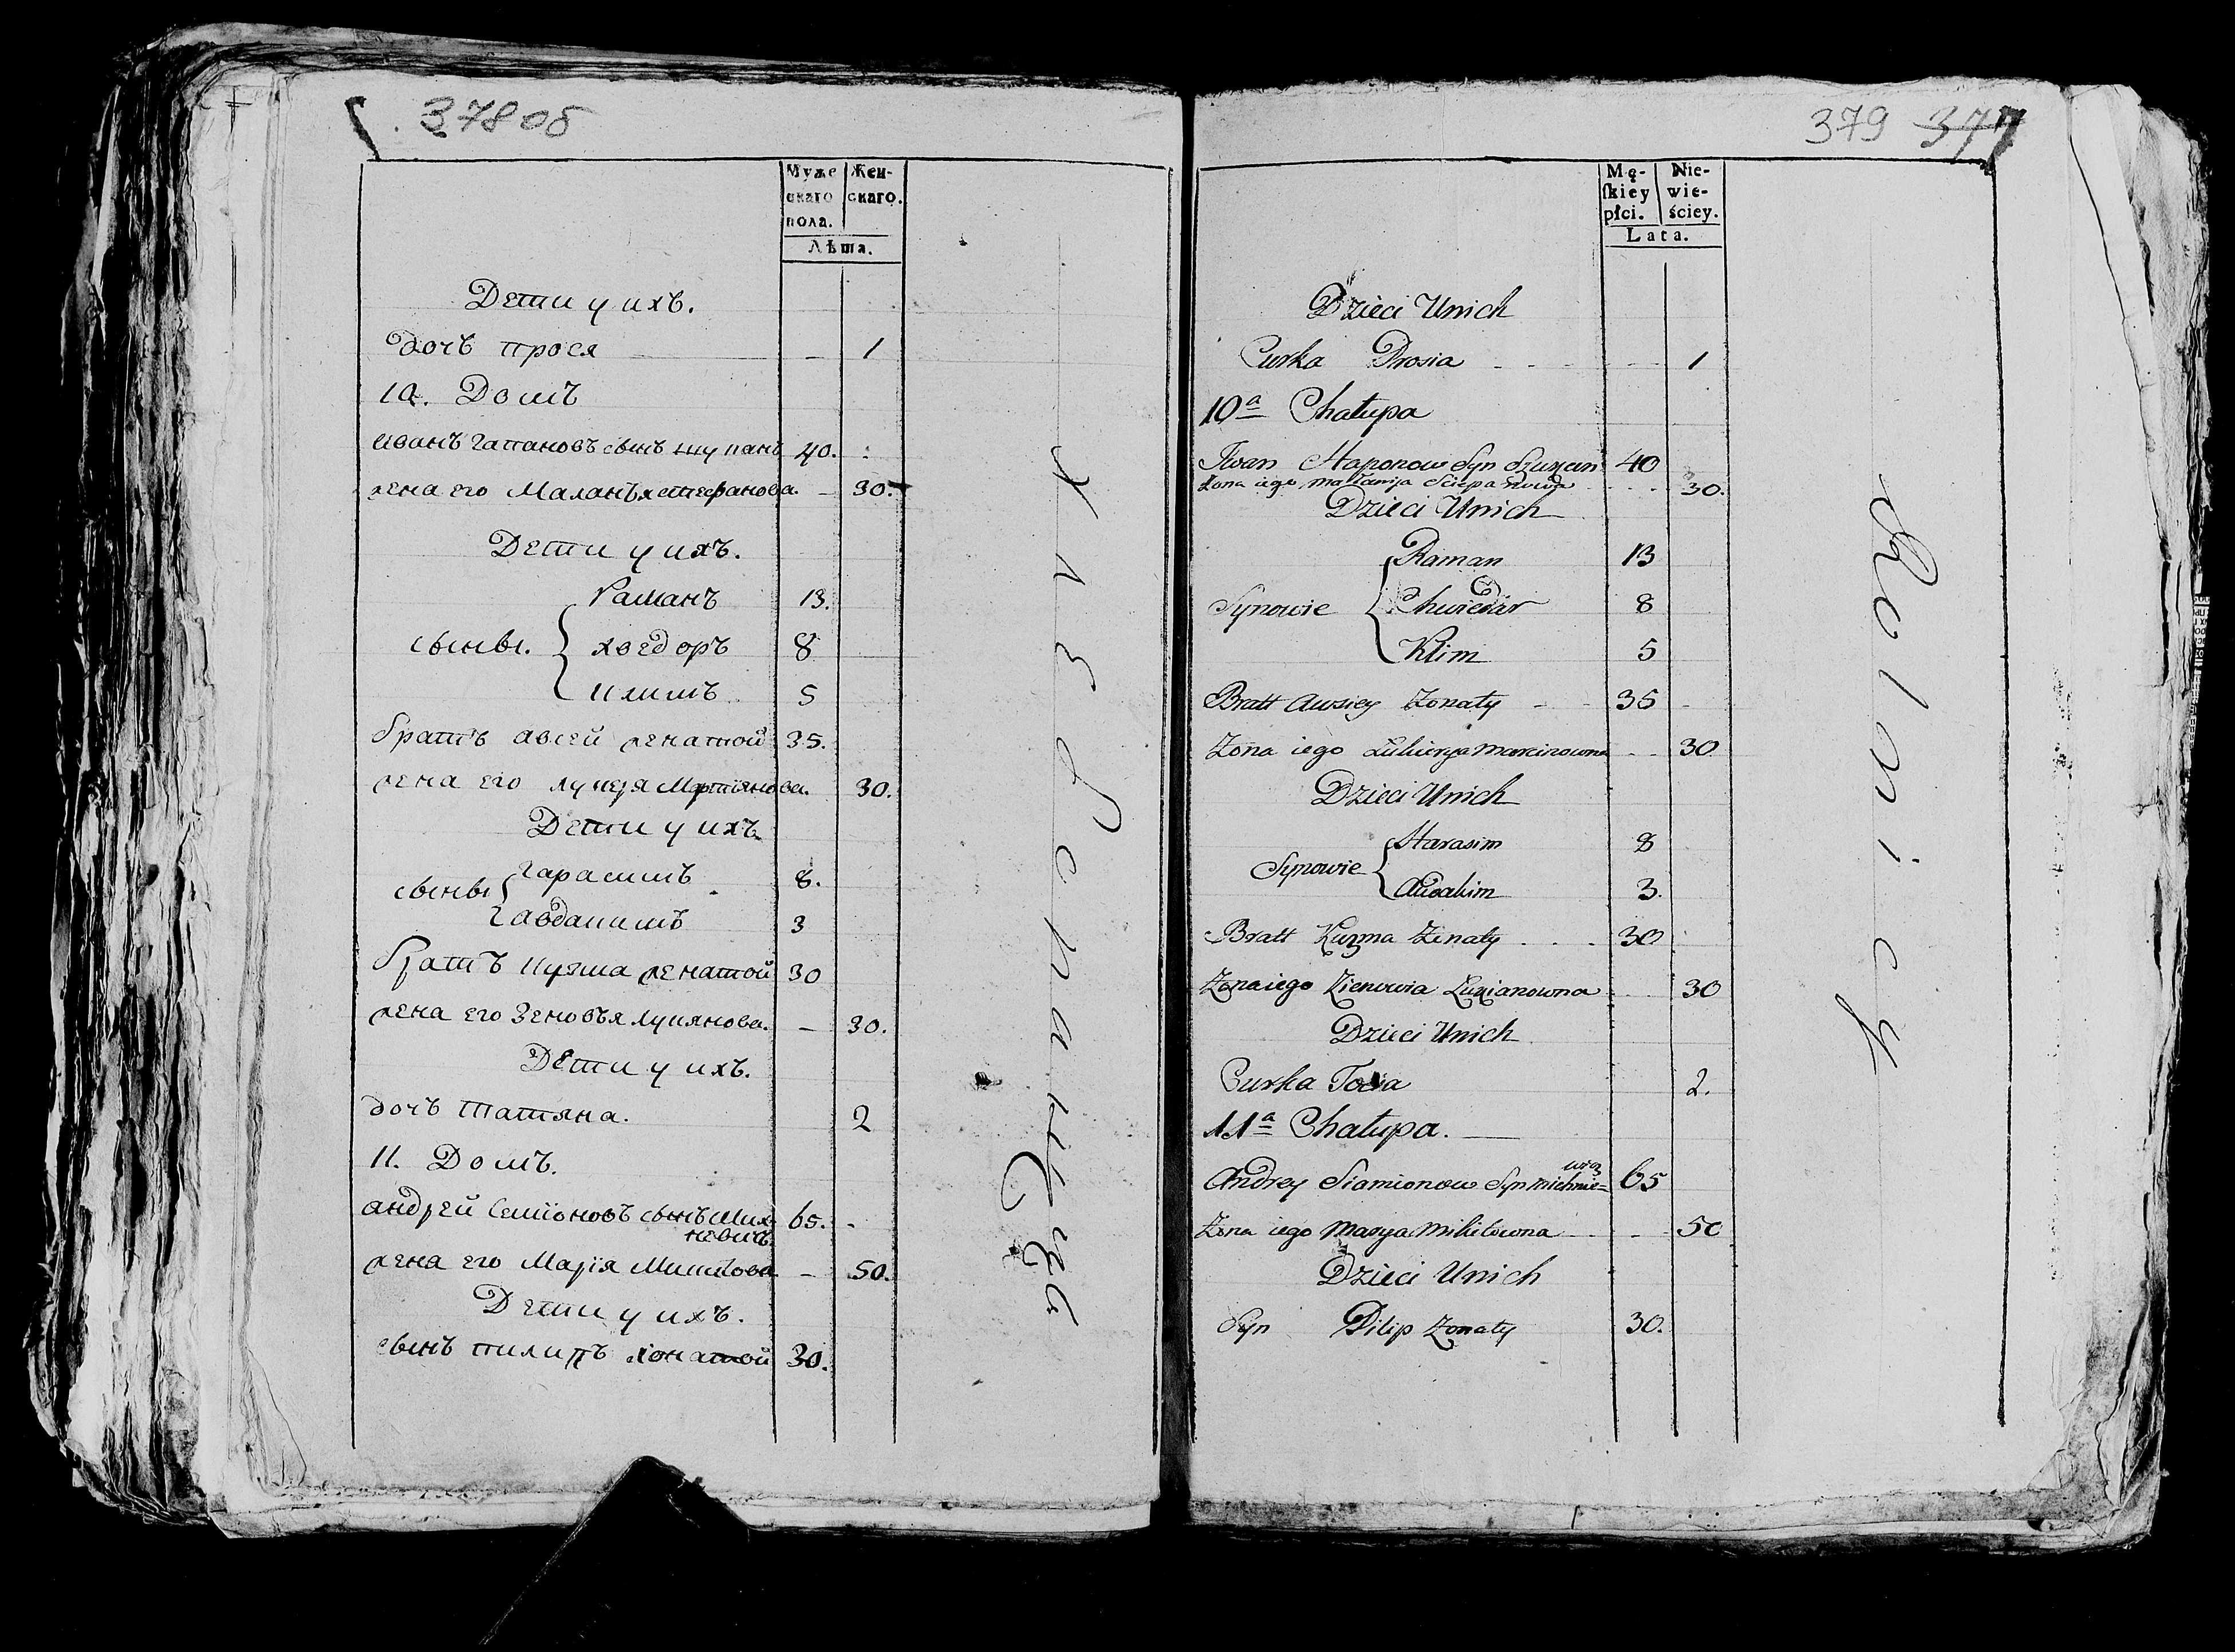 378 об
Муже
скаго
пола.
Жен-
скаго.
Лѣта.
Дети у ихъ.
дочъ прося — 1
10. Домъ
иванъ гапановъ сынъ шупанъ 40.
жена его Маланъя степанова. — 30.
Дети у ихъ.
Раманъ 13.
сыны. хведоръ 8
климъ 5
братъ авсей женатой 35.
жена его лукеря Мартянова. 30.
Дети у ихъ
гарасимъ 8.
сыны
авдакимъ 3
братъ кузма женатой 30
жена его Зеновъя лукянова. — 30.
Дети у ихъ.
дочъ татяна. 2
11. Домъ.
андрей Семіоновъ сынъ Мих-
невич
65.
жена его Марія Микитова — 50.
Дети у ихъ.
сынъ пилипъ жонатой 30.
379 377
Mę-
skiey
płci.
Nie-
wie-
ściey.
Lata.
Dzieci Unich
Curka Prosia 1
10a Chałupa
Iwan Haponow Syn Szupan 40
Zona iego Małanija Sciepanowa 30.
Dzieci Unich
Raman 13
Synowie Chwiedar 8
Klim 5
Bratt Awsiey Zonaty 35
Zona iego Łukierya Marcinowna 30
Dzieci Unich
Harasim 8
Synowie
Audakim 3.
Bratt Kuzma Zenaty 30
Zona iego Zienowia Łuzianowna 30
Dzieci Unich
Curka Tocia 2.
11a Chałupa.
Andrey Siamionow Syn Michnie=
wicz
65
Zona iego Marya Mikitowna 50
Dzieci Unich
Syn Pilip Zonaty 30.
Rolnicy